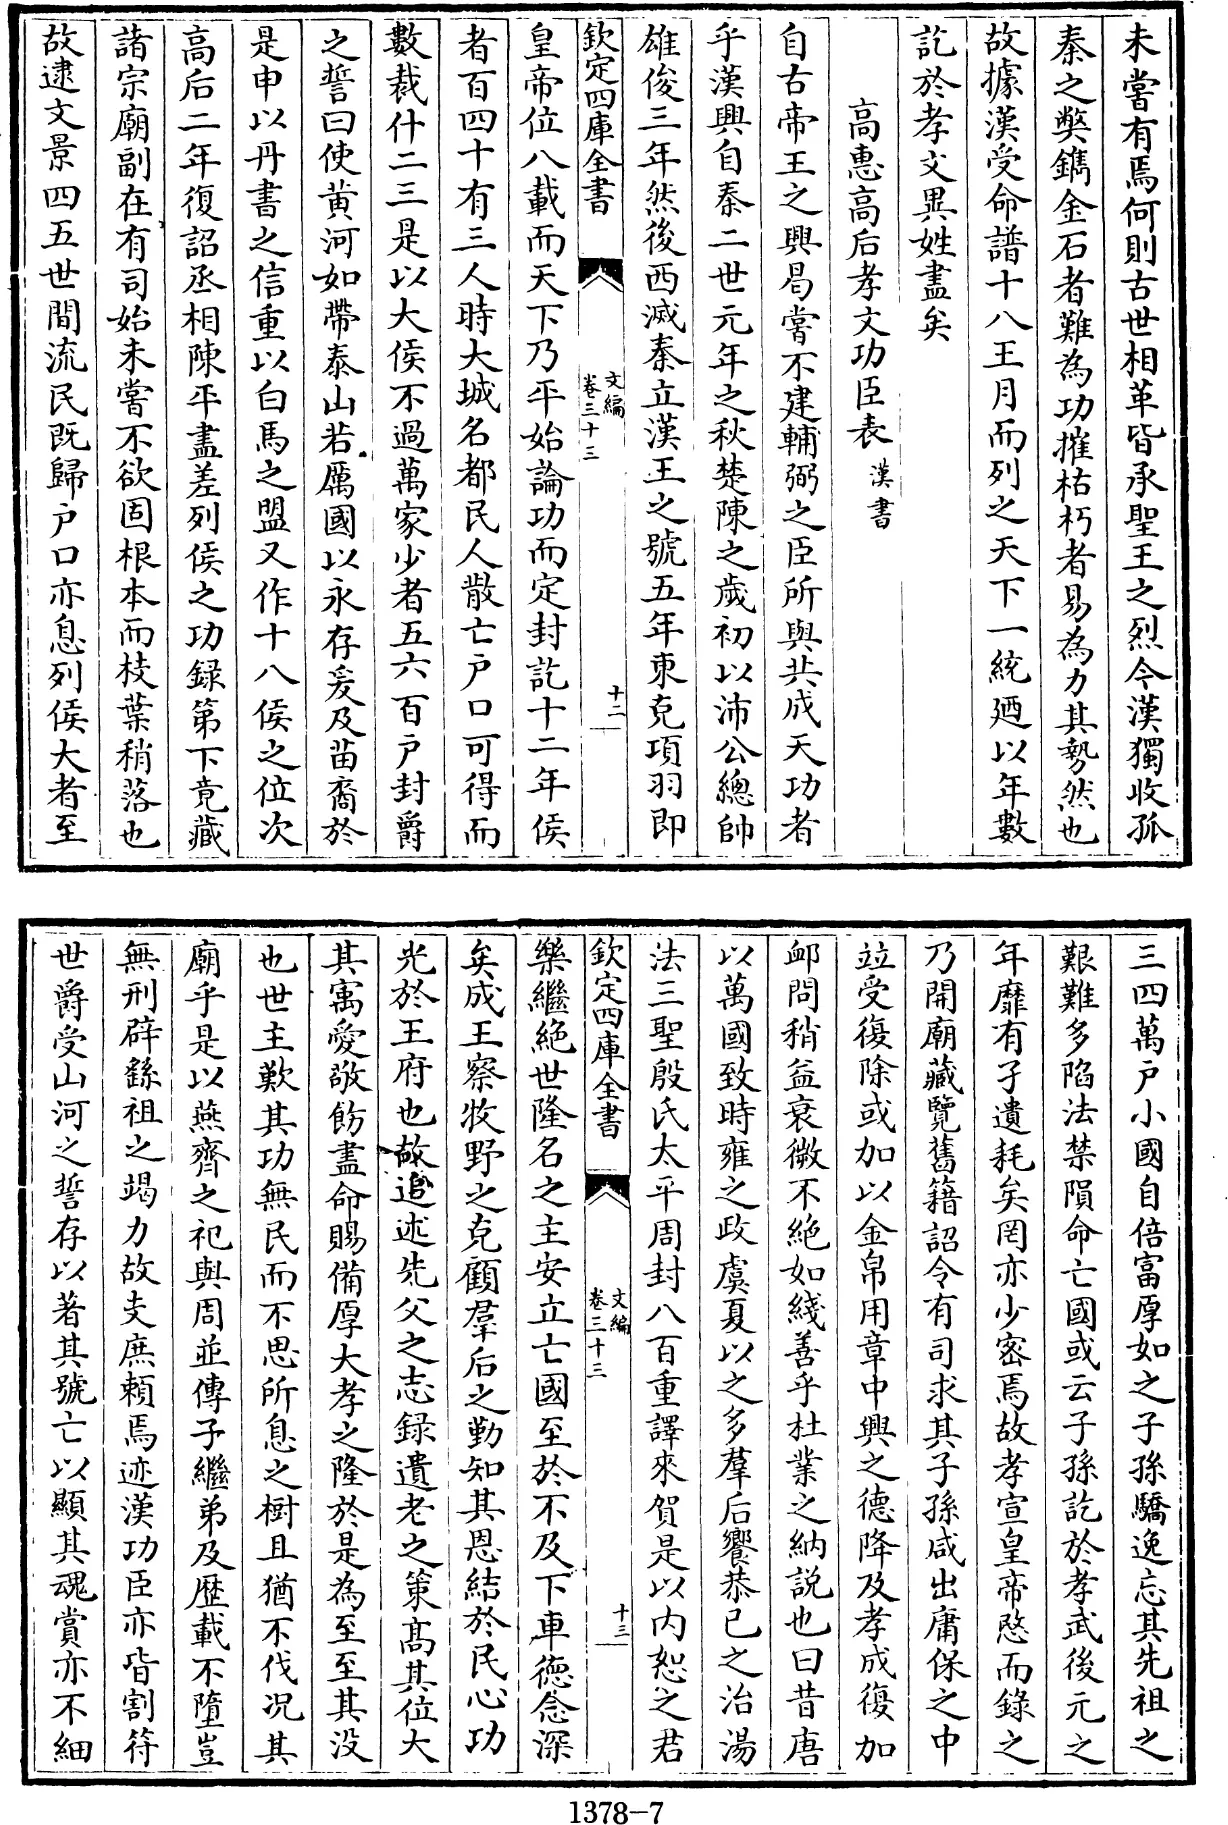 未嘗有焉何則古世相革皆承聖王之烈今漢獨收孤
秦之弊鐫金石者難為功摧枯朽者易為力其勢然也
故據漢受命譜十八王月而列之天下一統廼以年數
訖於孝文異姓盡矣
高惠高后孝文功臣表 漢書
自古帝王之興曷嘗不建輔弼之臣所與共成天功者
乎漢興自秦二世元年之秋楚陳之歲初以沛公總帥
雄俊三年然後西滅秦立漢王之號五年東克項羽即
欽定四庫全書 文編 卷三十三 十二
皇帝位八載而天下乃平始論功而定封訖十二年侯
者百四十有三人時大城名都民人散亡戶口可得而
數裁什二三是以大侯不過萬家少者五六百戶封爵
之誓曰使黃河如帶泰山若厲國以永存爰及苗裔於
是申以丹書之信重以白馬之盟又作十八侯之位次
高后二年復詔丞相陳平盡差列侯之功録第下竟藏
諸宗廟副在有司始未嘗不欲固根本而枝葉稍落也
故逮文景四五世間流民既歸戶口亦息列侯大者至
三四萬戶小國自倍富厚如之子孫驕逸忘其先祖之
艱難多陷法禁隕命亡國或云子孫訖於孝武後元之
年靡有孑遺耗矣罔亦少密焉故孝宣皇帝愍而錄之
乃開廟藏覽舊籍詔令有司求其子孫咸出庸保之中
竝受復除或加以金帛用章中興之德降及孝成復加
卹問稍益衰微不絶如綫善乎杜業之納説也曰昔唐
以萬國致時雍之政虞夏以之多羣后饗恭已之治湯
法三聖殷氏太平周封八百重譯來賀是以内恕之君
欽定四庫全書 文編 卷三十三 十三
樂繼絶世隆名之主安立亡國至於不及下車德念深
矣成王察牧野之克顧羣后之勤知其恩結於民心功
光於王府也故追述先父之志録遺老之策髙其位大
其寓愛敬飭盡命賜備厚大孝之隆於是為至至其没
也世主歎其功無民而不思所息之樹且猶不伐况其
廟乎是以燕齊之祀與周並傳子繼弟及歴載不墮豈
無刑辟繇祖之竭力故支庶頼焉迹漢功臣亦皆割符
世爵受山河之誓存以著其號亡以顯其魂賞亦不細
1378-7